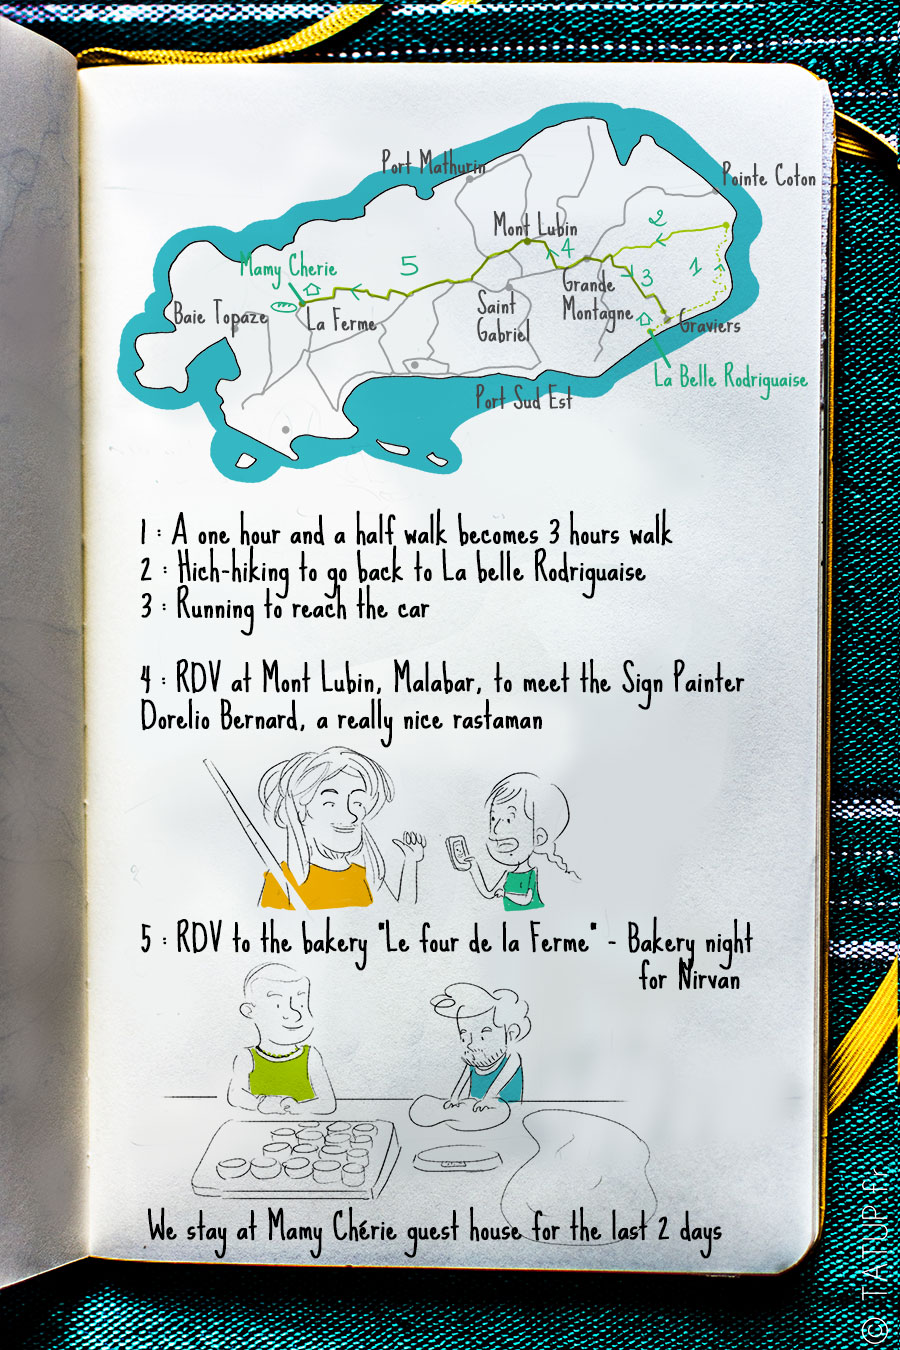 Port Mathurin
Pointe Coton
Mont Lubin
2
4
Mamy Cherie
5
1
3
Grande
Montagne
Saint
Gabriel
Baie Topaze
La Ferme
Graviers
La Belle Rodriguaise
Port Sud Est
1 : A one hour and a half walk becomes 3 hours walk
2 : Hich-hiking to go back to La belle Rodriguaise
3 : Running to reach the car
4 : RDV at Mont Lubin, Malabar, to meet the Sign Painter
Dorelio Bernard, a really nice rastaman
5 : RDV to the bakery "Le four de la Ferme" - Bakery night
for Nirvan
We stay at Mamy Chérie guest house for the last 2 days
© TATUP.fr